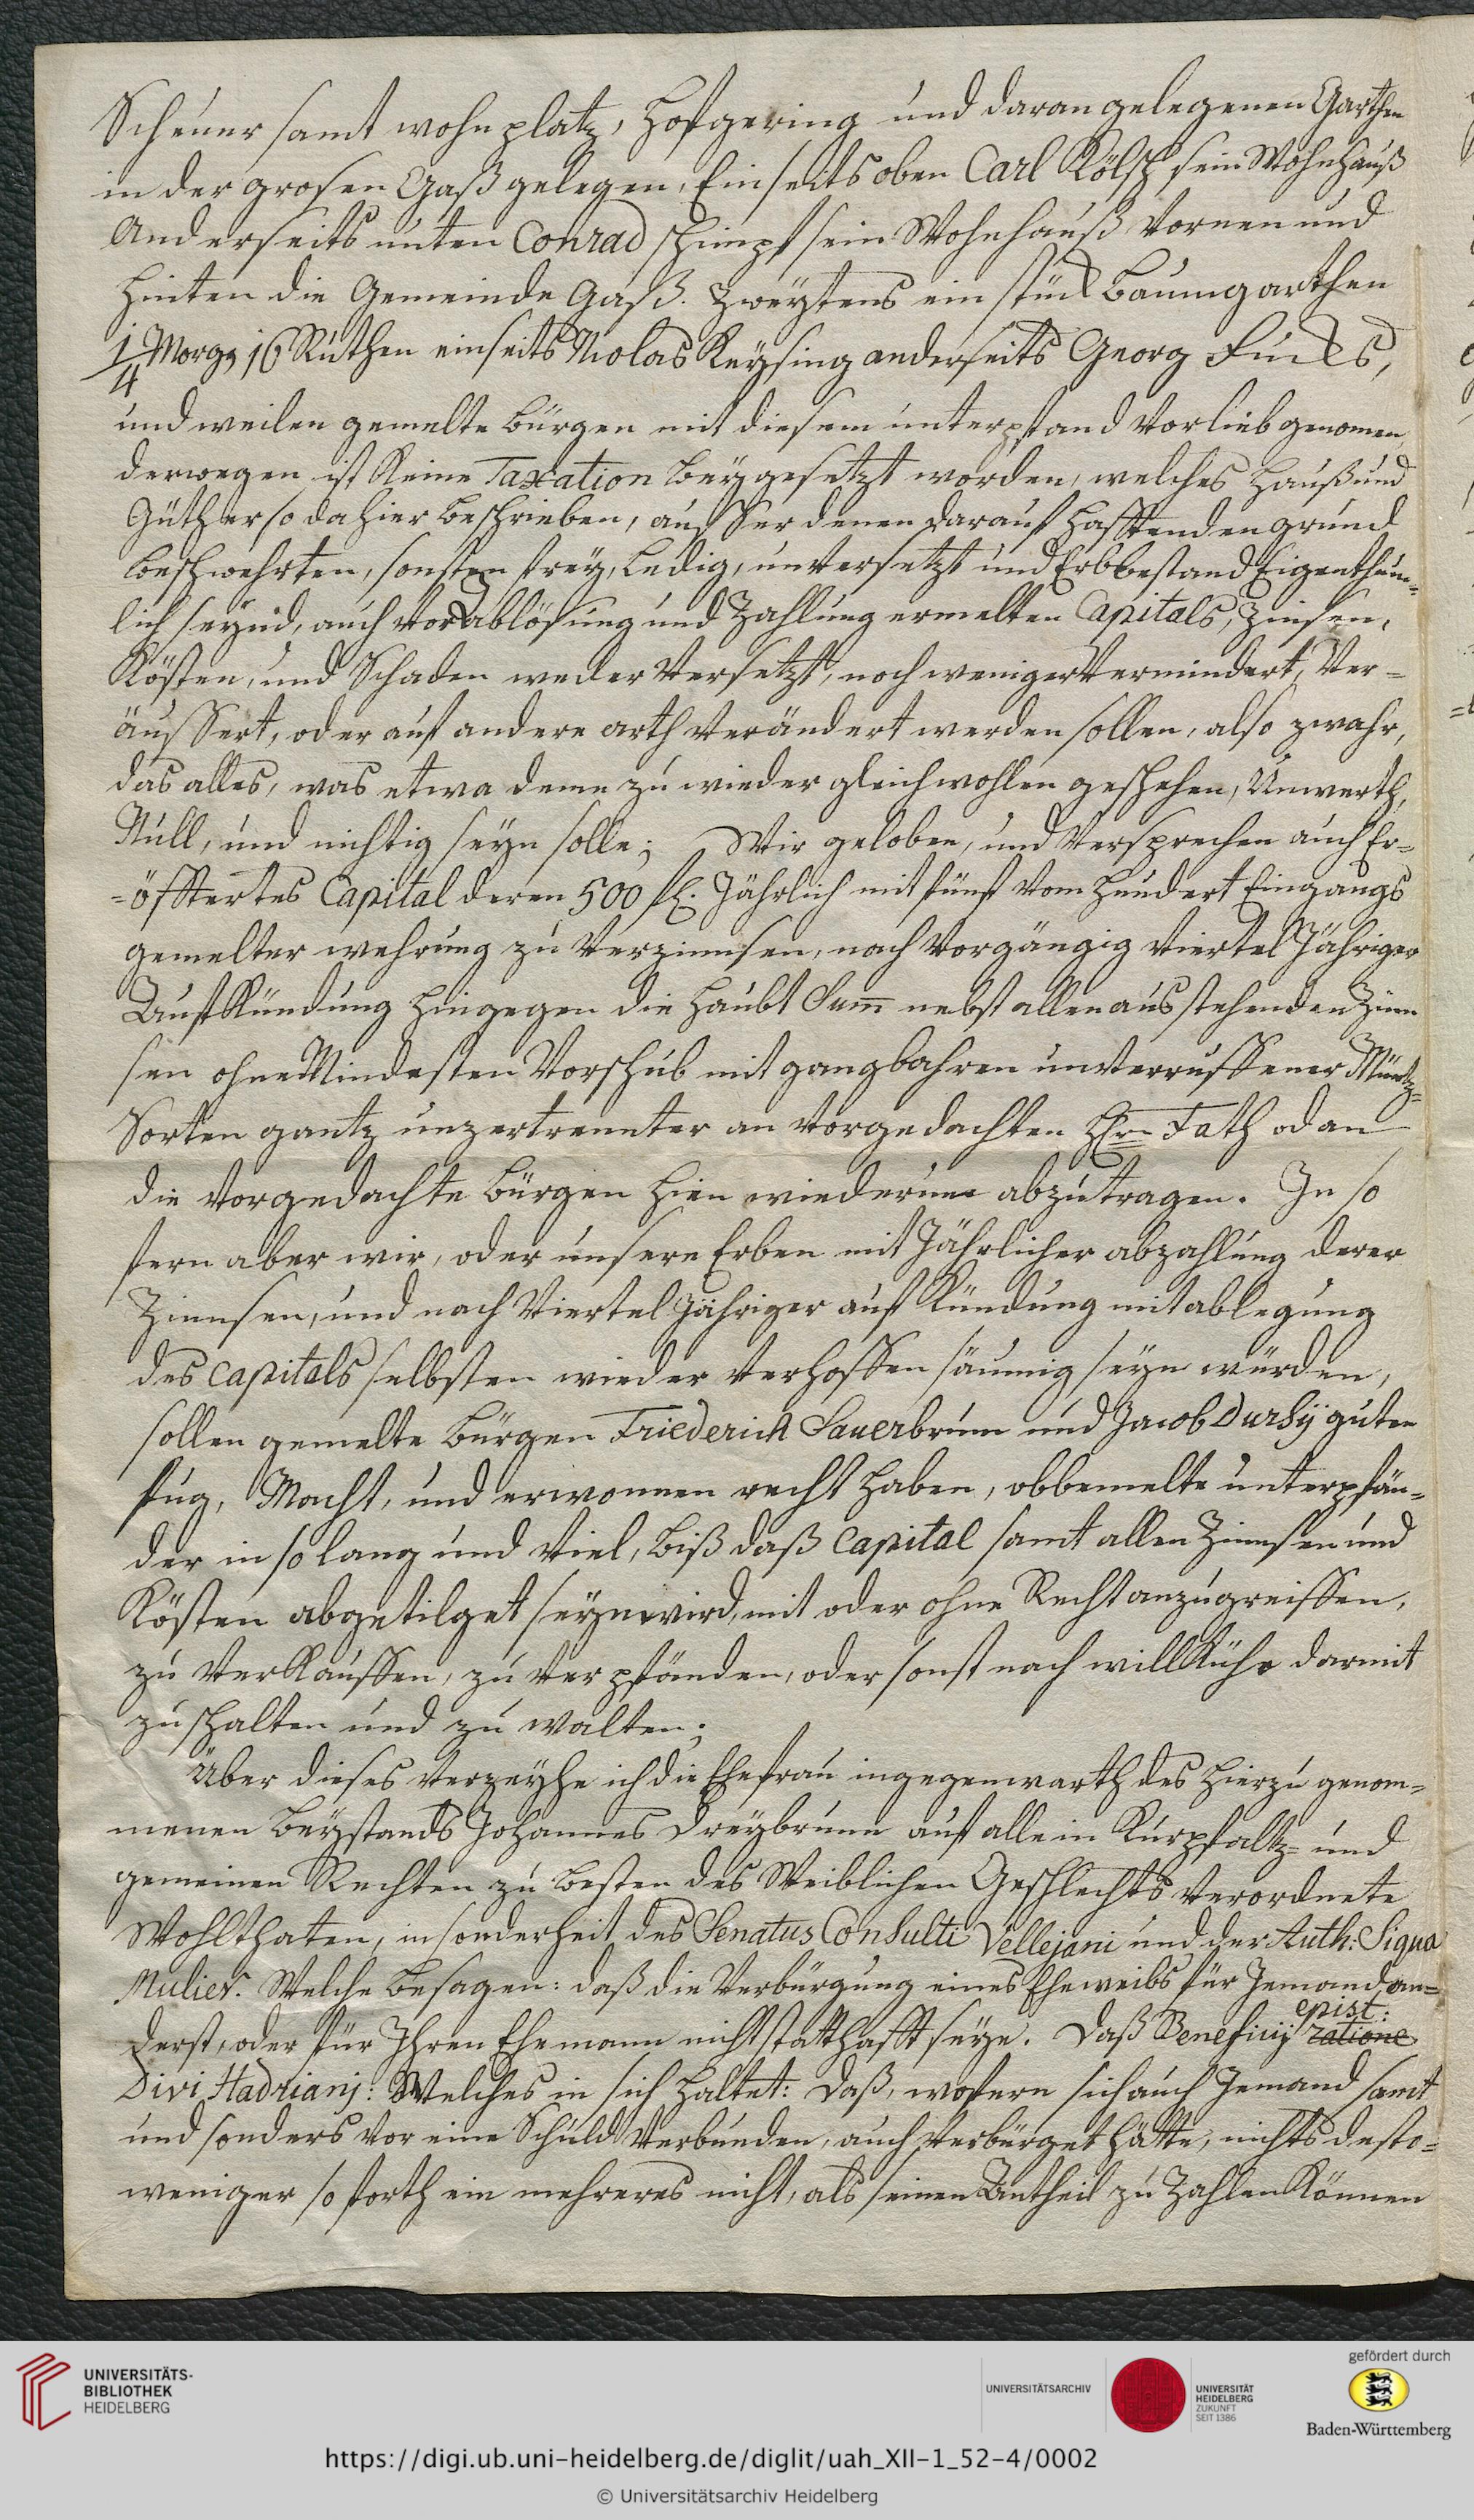 Scheuer samt wohnplatz, Hofgering und daran gelegenen Garthen
in der grosen Gaß gelegen, Einseits oben Carl Kölsch sein Wohnhauß
Anderseits unten Conrad Schimpf sein Wohnhauß vornen und
hinten die Gemeinde Gaß. Zweytens ein stück Baumgarthen
1/4 Morg, 16 Ruthen einseits Niolas Keysing anderseits Georg Fuchs,
und weilen gemelte Bürgen mit diesem unterpfand vorlieb genomen,
derwegen ist Keine Taxation beygesetzt worden, welches Hauß und
Güther so dahier beschrieben, ausser denen darauf hafftenden grund
beschwehrten, sonsten frey, Ledig, unversetzt und Erbbestand Eigenthum=
lich seynd, auch vor Ablösung und Zahlung ermelten Capitals, Zinsen,
Kösten, und Schaden weder Versetzt, noch weniger Vermindert, Ver=
äussert, oder auf andere arth Verändert werden sollen, also zwahr,
das alles, was etwa deme zu wieder gleichwohlen geschehen, Unwerth,
Null, und nichtig seyn solle; Wir geloben, und Versprechen auch Er=
=öfftertes Capital deren 500 fl. Jährlich mit fünf vom Hundert Eingangs
gemelter wehrung zu Verzinnsen, nach Vorgängig Viertel Jähriger
Auf Kündung hingegen die Haubt Summ nebst allen ausstehenden Zinn
sen ohne Mindesten Vorschub mit gangbahren unverruffener Müntz=
Sorten gantz unzertrennter an Vorgedachten Hrn Fath od an
die Vorgedachte Bürgen hien wiederum abzutragen. In so
fern aber wir, oder unsere Erben mit Jährlicher abzahlung derer
Zinnsen, und nach Viertel Jähriger auf Kündung mit ablegung
des capitals selbsten wieder Verhoffen säumig seyn würden,
sollen gemelte Bürgen Friederich Sauerbrunn und Jacob Dursÿ guten
fug, Macht, und erwonnen recht haben, obbemelte unterpfän=
der in so lang und Viel, biß daß Capital samt allen Zinnsen und
Kösten abgetilget seyn wird, mit oder ohne Recht anzugreiffen,
zu Verkauffen, zu Verpfänden, oder sonst nach willkühr darmit
zu schalten und zu walten;
Über dieses Verzeyhe ich die Ehefrau in gegenwarth des hierzu genom=
menen Beystands Johannes Dreybrunn auf alle in Kurpfaltz= und
gemeinen Rechten zu besten des Weiblichen Geschlechts Verordnete
Wohlthaten, insonderheit des Senatus Consulti Vellejani und der Auth: Siqua
Mulier. Welche besagen: daß die Verbürgung eines Eheweibs für Jemand an=
epist:
derst, oder für Ihren Ehemann nicht statthafft seye. Daß Beneficij ratione
Divi Hadrianj: Welches in sich haltet: Daß, wofern sich auch Jemand samt
und sonders vor eine Schuld Verbunden, auch Verbürget hätte, nichts desto=
weniger so forth ein mehreres nicht, als seinen Antheil zu Zahlen Können
UNIVERSITÄTS-
BIBLIOTHEK
HEIDELBERG
UNIVERSITÄTSARCHIV
UNIVERSITÄT
HEIDELBERG
ZUKUNFT
SEIT 1386
gefördert durch
Baden-Württemberg
https://digi.ub.uni-heidelberg.de/diglit/uah_XII-1_52-4/0002
© Universitätsarchiv Heidelberg